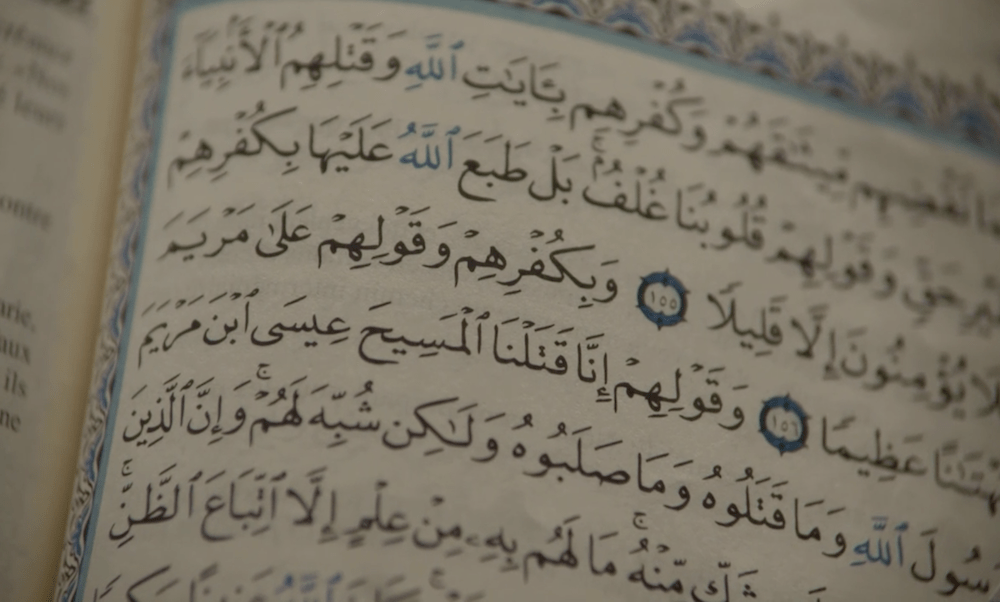 نَقْضِهِم مِّيثَٰقَهُمْ وَكُفْرِهِم بِـَٔايَٰتِ ٱللَّهِ وَقَتْلِهِمُ ٱلْأَنۢبِيَآءَ
حَقٍّ وَقَوْلِهِمْ قُلُوبُنَا غُلْفٌۢ ۚ بَلْ طَبَعَ ٱللَّهُ عَلَيْهَا بِكُفْرِهِمْ
لَا يُؤْمِنُونَ إِلَّا قَلِيلًا ١٥٥ وَبِكُفْرِهِمْ وَقَوْلِهِمْ عَلَىٰ مَرْيَمَ
عَظِيمًا ١٥٦ وَقَوْلِهِمْ إِنَّا قَتَلْنَا ٱلْمَسِيحَ عِيسَى ٱبْنَ مَرْيَمَ
رَسُولَ ٱللَّهِ وَمَا قَتَلُوهُ وَمَا صَلَبُوهُ وَلَٰكِن شُبِّهَ لَهُمْ ۚ وَإِنَّ ٱلَّذِينَ
شَكٍّ مِّنْهُ ۚ مَا لَهُم بِهِۦ مِنْ عِلْمٍ إِلَّا ٱتِّبَاعَ ٱلظَّنِّ ۚ